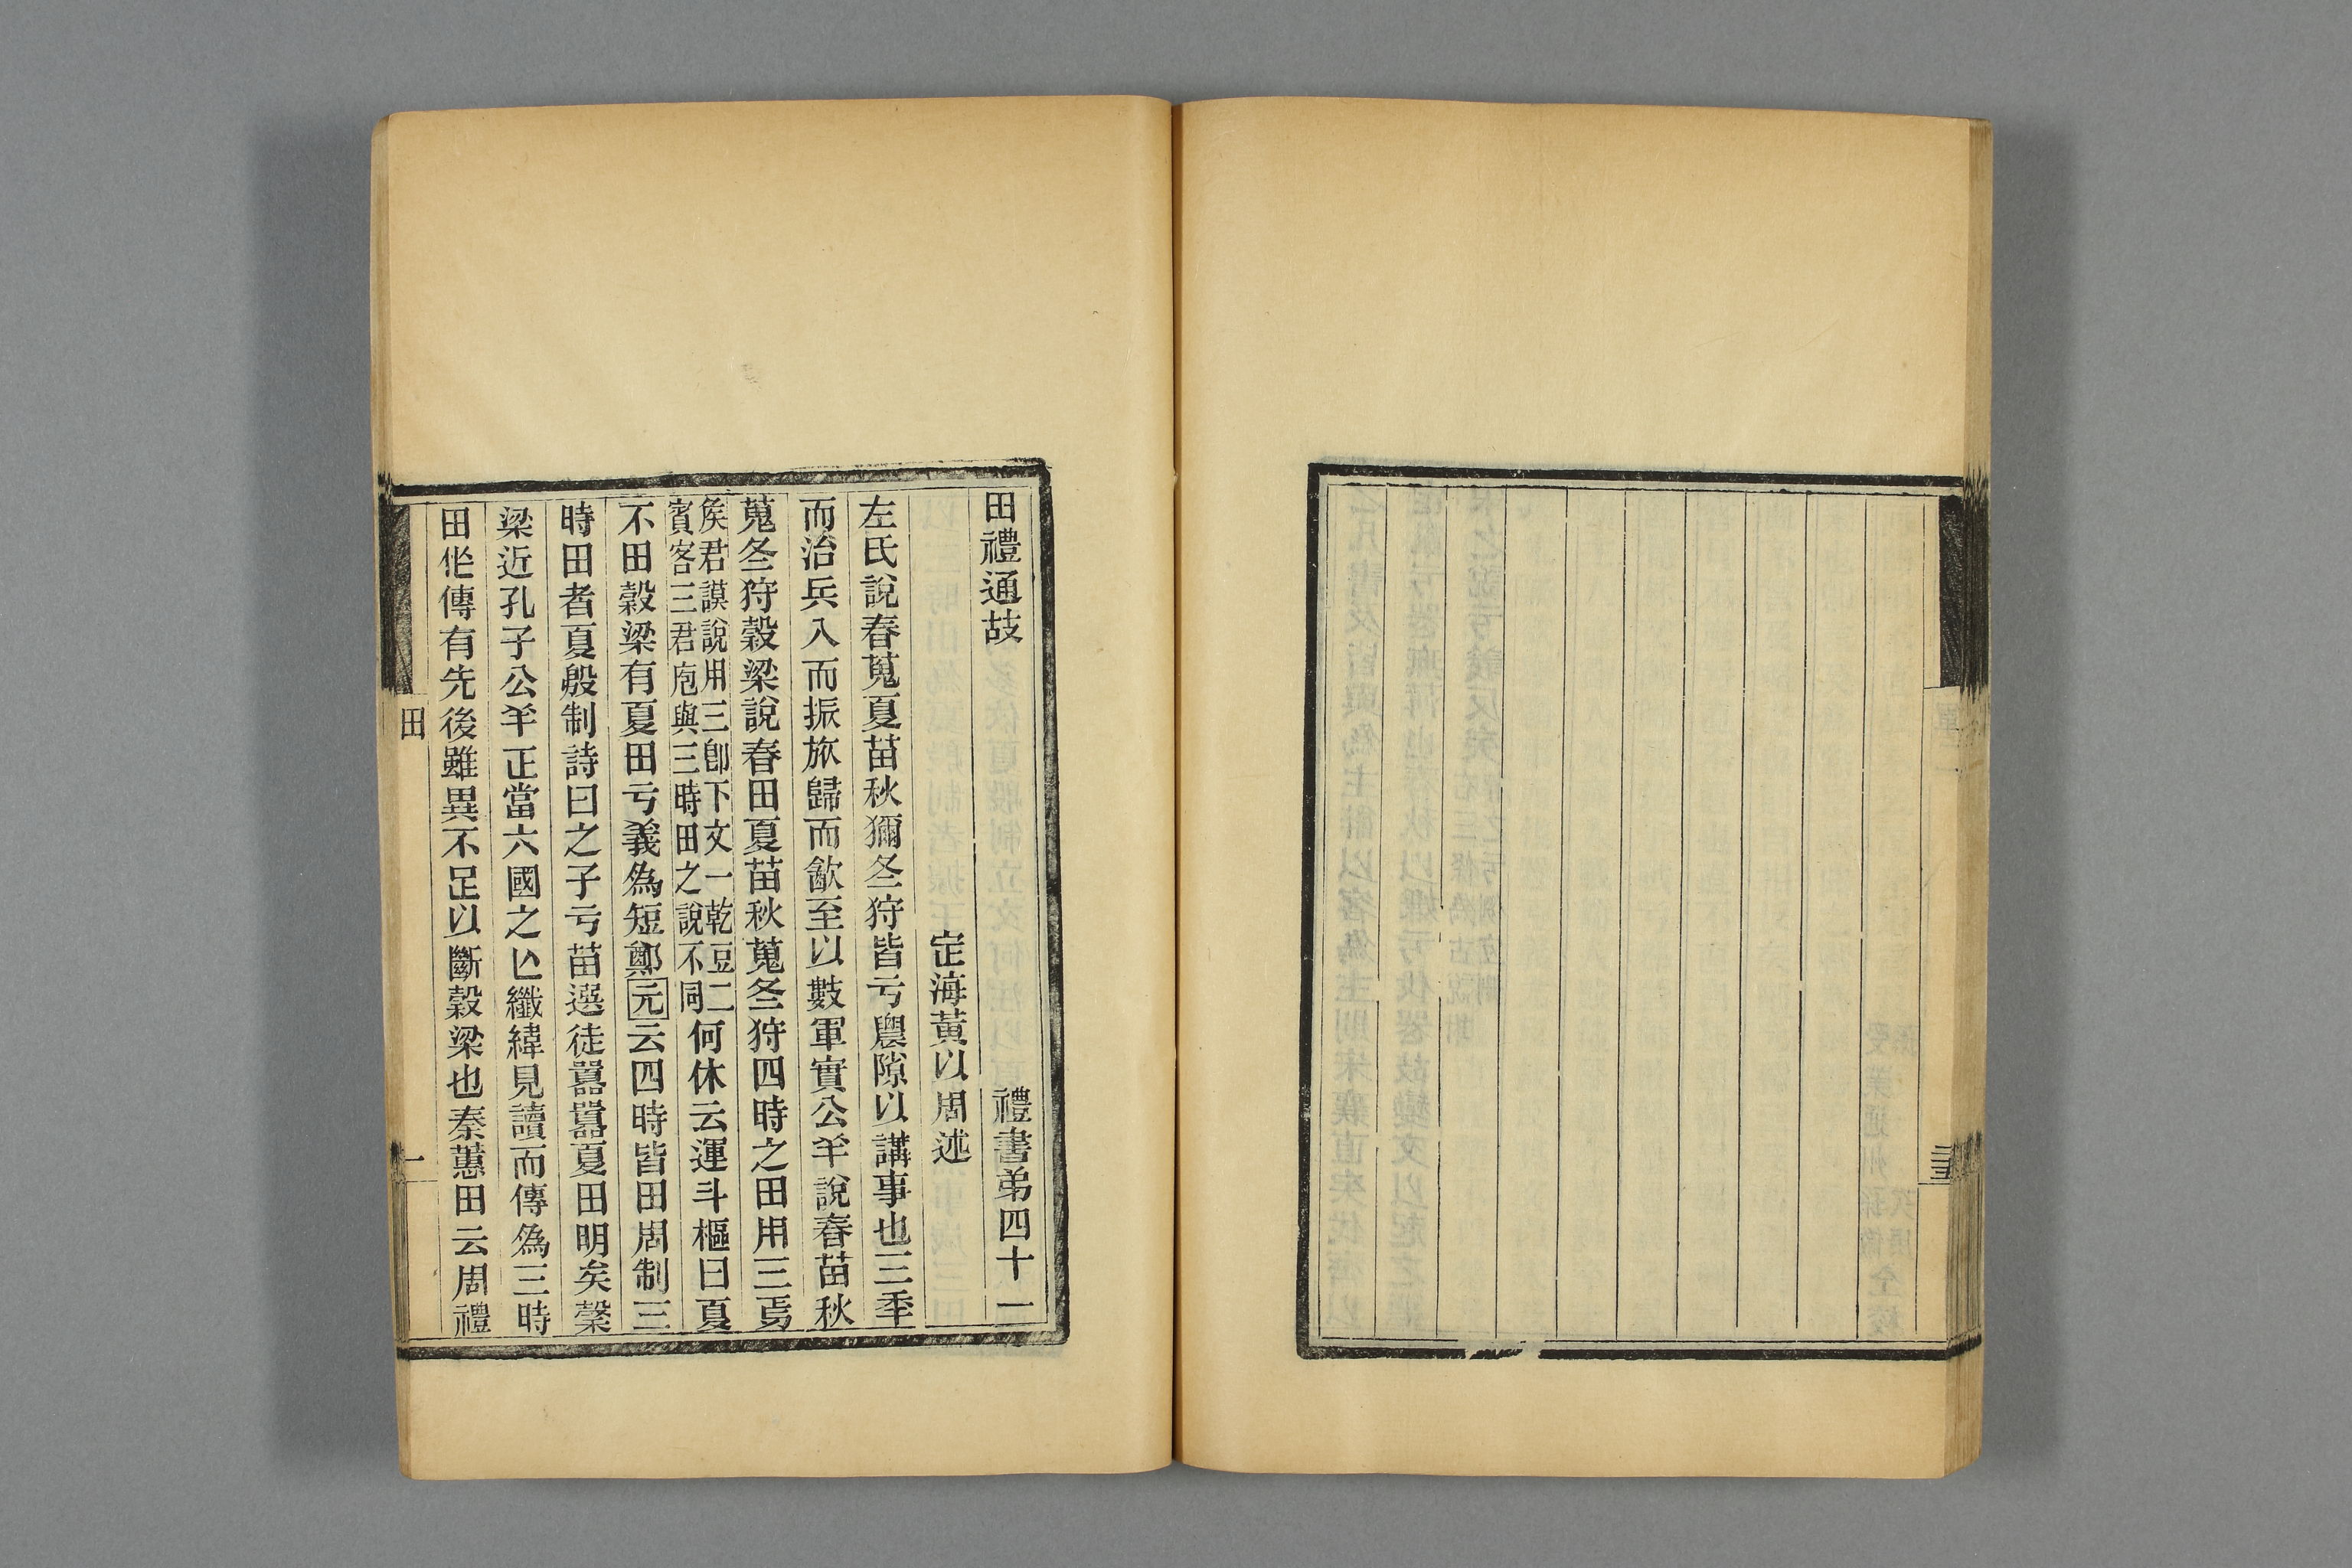 田禮通故　禮書弟四十一
定海黃以周述
左氏說春蒐夏苗秋獮冬狩皆亏農隙以講事也三秊
而治兵入而振旅歸而歓至以數軍實公羊說春苗秋
蒐冬狩穀梁說春田夏苗秋蒐冬狩四時之田用三焉
矦君謨說用三卽下文一乾豆二
賓客三君庖與三時田之說不同何休云運斗樞曰夏
不田穀梁有夏田亏義爲短鄭元云四時皆田周制三
時田者夏殷制詩曰之子亏苗選徒囂囂夏田明矣榖
梁近孔子公羊正當六國之亾纖緯見讀而傳爲三時
田作傳有先後雖異不足以斷穀梁也秦蕙田云周禮
田
一